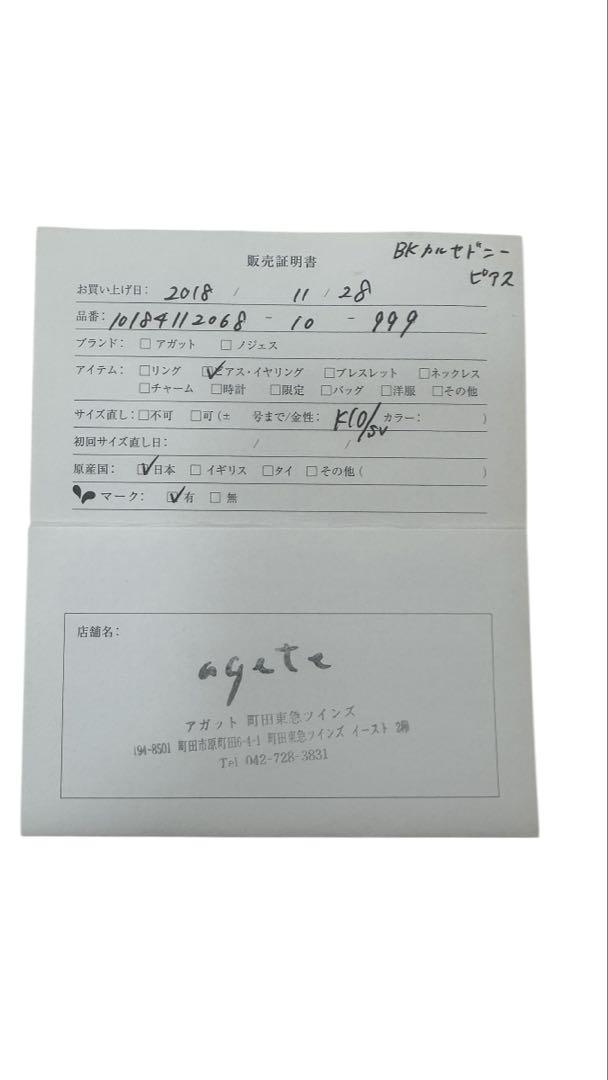 BKカルセドニー
ピアス
販売証明書
お買い上げ日: 2018 / 11 / 28
品番: 10184112068 - 10 - 999
ブランド: □ アガット □ ノジェス
アイテム: □リング ☑ピアス・イヤリング □ブレスレット □ネックレス
□チャーム □時計 □限定 □バッグ □洋服 □その他
サイズ直し: □不可 □可 (± 号まで/金性: K10/SV カラー: )
初回サイズ直し日: / /
原産国: ☑日本 □イギリス □タイ □その他 ( )
マーク: ☑有 □無
店舗名:
agete
アガット 町田東急ツインズ
194-8501 町田市原町田6-4-1 町田東急ツインズ イースト 2階
Tel 042-728-3831